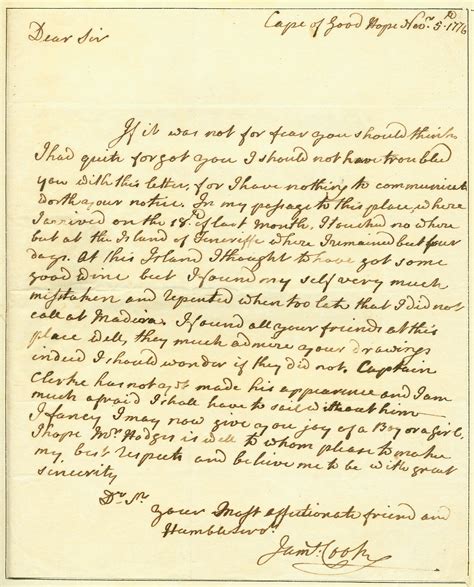 Cape of Good Hope Novr. 5th. 1776
Dear Sir
If it was not for fear you should think
I had quite forgot you I should not have troubled
you with this letter, for I have nothing to communicate
worth your notice. In my passage to this place, where
I arrived on the 18th of last Month, I touched no where
but at the Island of Teneriffe where I remained but four
days. At this Island I thought to have got some
good Wine but I found my self very much
misstaken and repented when too late that I did not
call at Madeira. I found all your friends at this
place well, they much admire your drawings
indeed I should wonder if they did not, Captain
Clerke has not yet made his appearence and I am
much afraid I shall have to sail without him
I fancy I may now give you joy of a Boy or a girl,
I hope Mrs Hodges is well to whom please to make
my best respects and believe me to be with great
sincerity
Dr. Sr.
your Most affectionate friend and
Humble Servt.
Jams. Cook